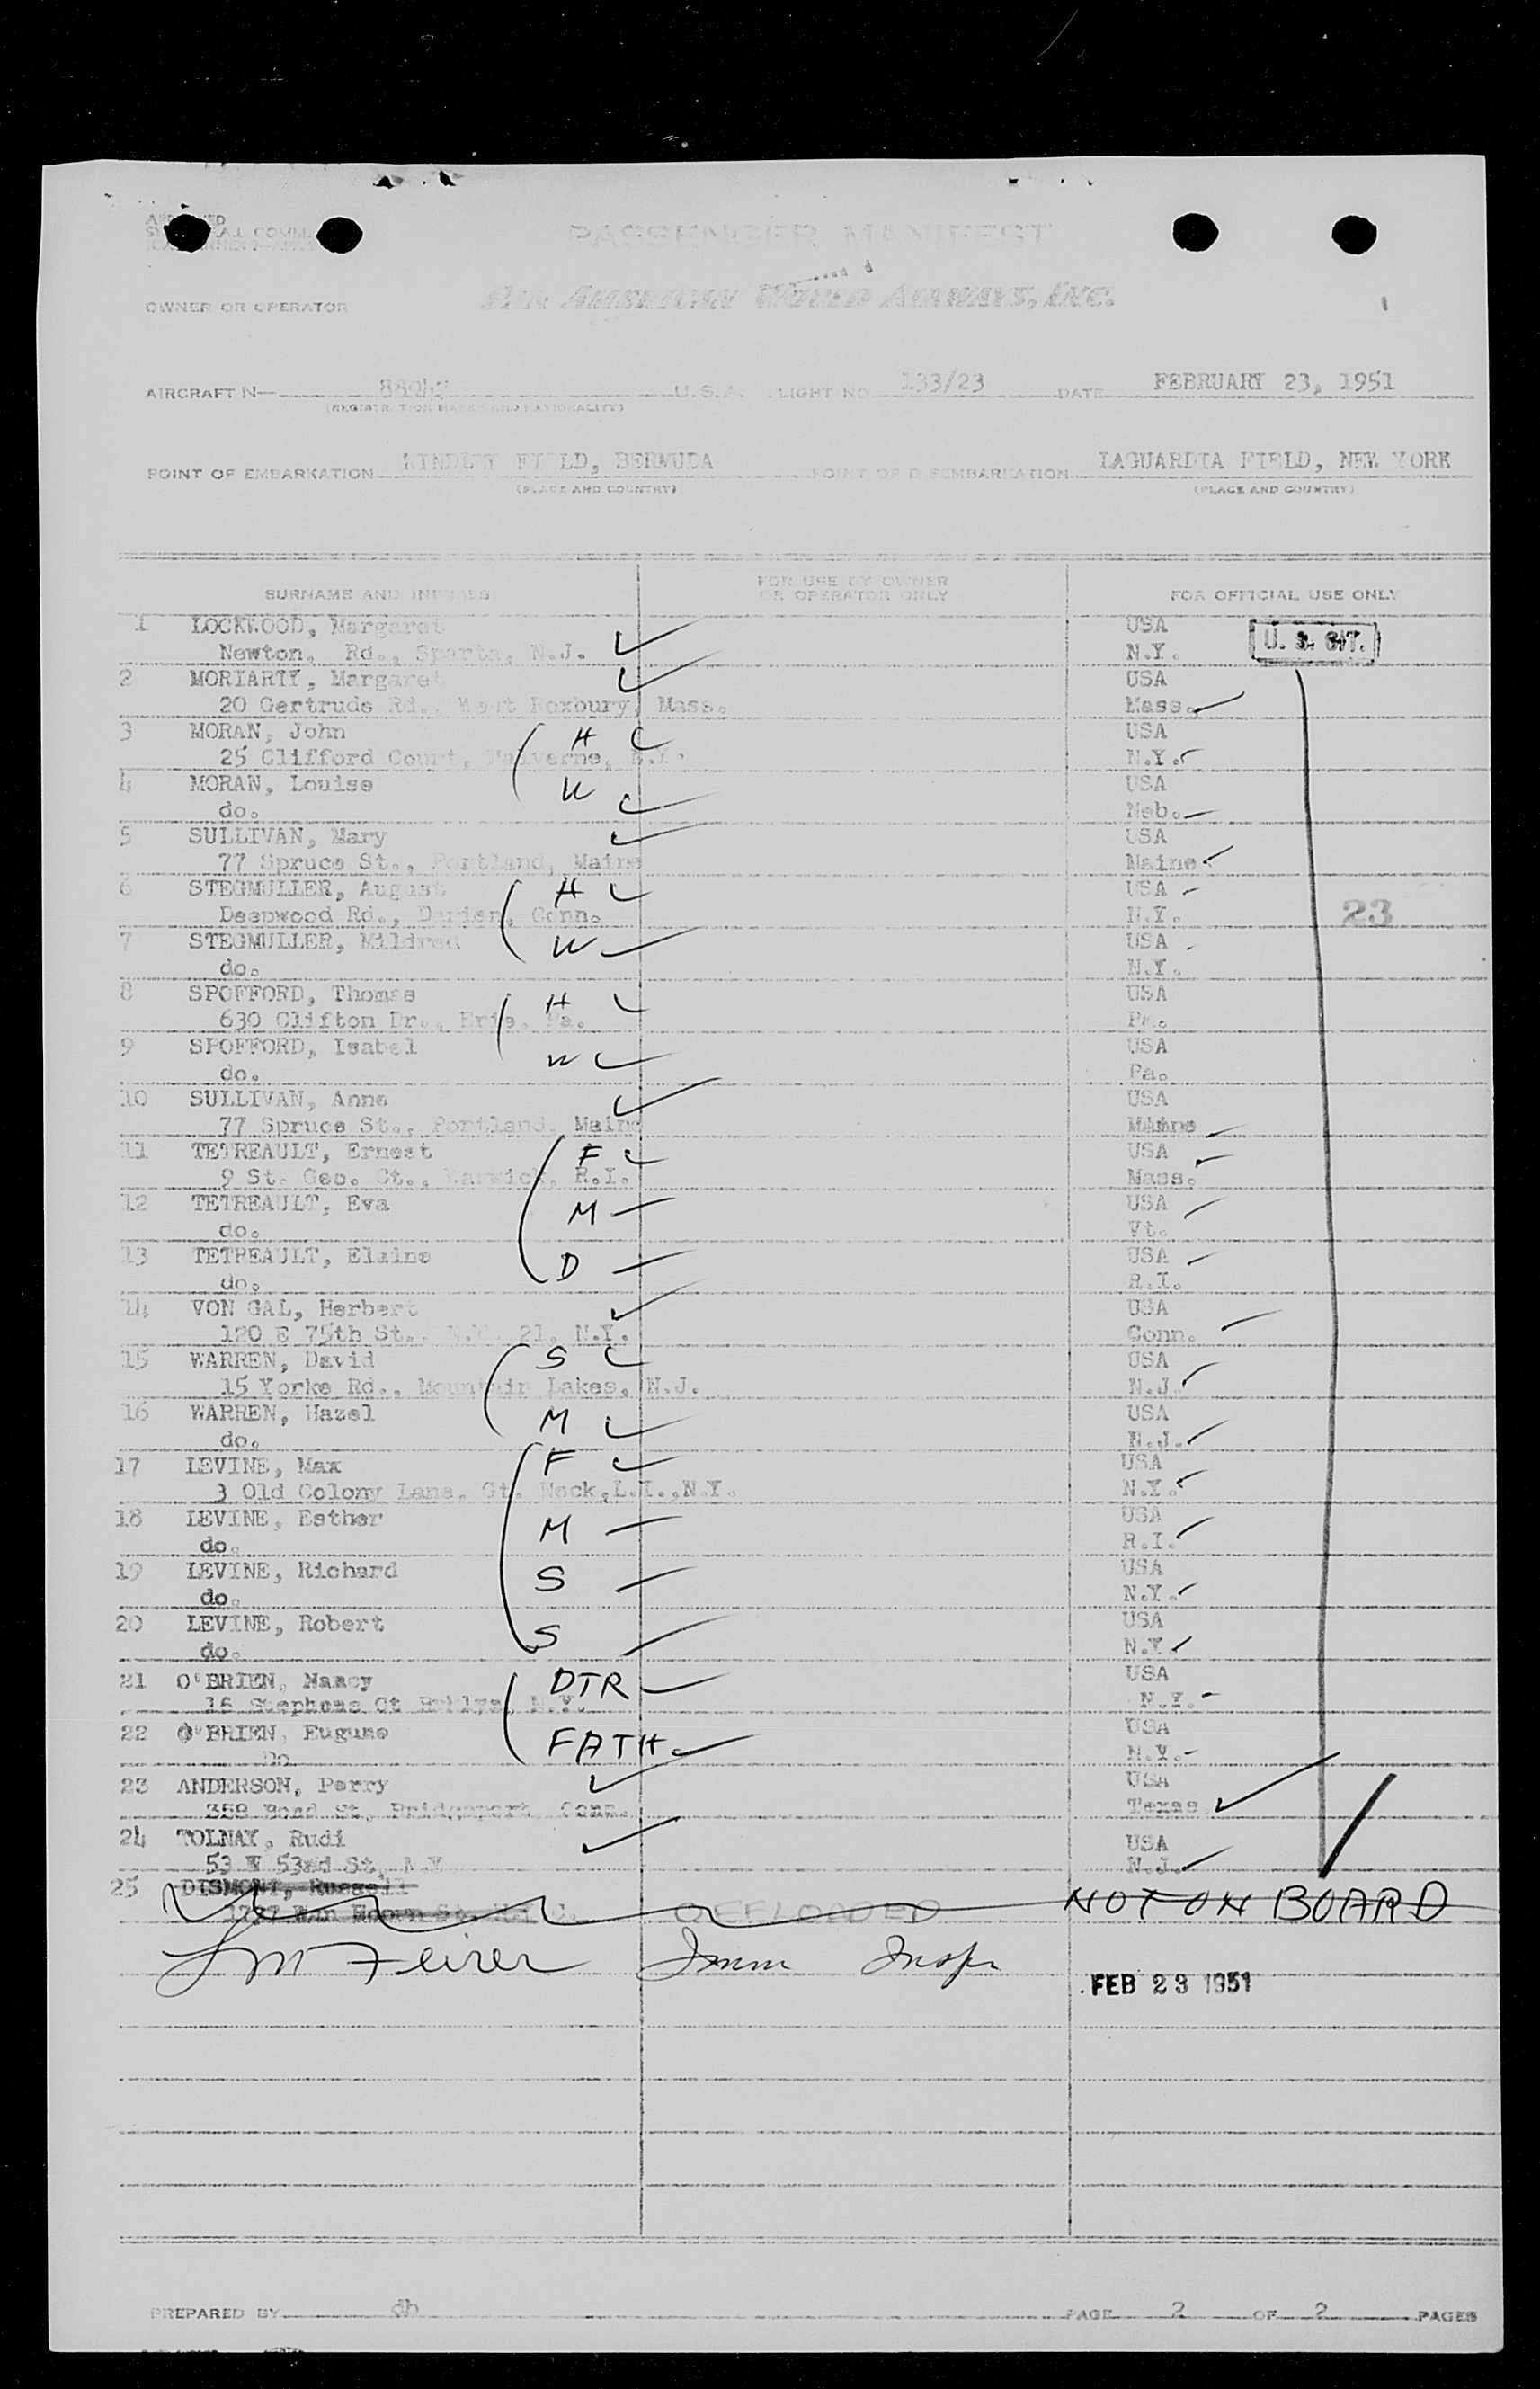 PASSENGER MANIFEST
OWNER OR OPERATOR PAN AMERICAN WORLD AIRWAYS, INC.
AIRCRAFT N— U.S.A. FLIGHT NO. 133/23 DATE FEBRUARY 23, 1951
(REGISTRATION MARKS AND NATIONALITY)
POINT OF EMBARKATION KINDLEY FIELD, BERMUDA POINT OF DISEMBARKATION LAGUARDIA FIELD, NEW YORK
(PLACE AND COUNTRY) (PLACE AND COUNTRY)
SURNAME AND INITIALS FOR USE BY OWNER OR OPERATOR ONLY FOR OFFICIAL USE ONLY
1 LOCKWOOD, Margaret USA
Newton, Rd., Sparta, N.J. ✓ N.Y. U. S. CIT.
2 MORIARTY, Margaret ✓ USA
20 Gertrude Rd., West Roxbury, Mass. Mass.
3 MORAN, John H USA
25 Clifford Court, Malverne, N.Y. N.Y.
4 MORAN, Louise W USA
do. Neb.
5 SULLIVAN, Mary USA
77 Spruce St., Portland, Maine Maine
6 STEGMULLER, August H USA
Deepwood Rd., Darien, Conn. N.Y. 23
7 STEGMULLER, Mildred W USA
do. N.Y.
8 SPOFFORD, Thomas H USA
630 Clifton Dr., Erie, Pa. Pa.
9 SPOFFORD, Isabel W USA
do. Pa.
10 SULLIVAN, Anne USA
77 Spruce St., Portland, Maine Maine
11 TETREAULT, Ernest F USA
9 St. Geo. Ct., Warwick, R.I. Mass.
12 TETREAULT, Eva M USA
do. Vt.
13 TETREAULT, Elaine D USA
do. R.I.
14 VON GAL, Herbert USA
120 E 75th St., N.Y. 21, N.Y. Conn.
15 WARREN, David S USA
15 Yorke Rd., Mountain Lakes, N.J. N.J.
16 WARREN, Hazel M USA
do. N.J.
17 LEVINE, Max F USA
3 Old Colony Lane, Gt. Neck,L.I.,N.Y. N.Y.
18 LEVINE, Esther M USA
do. R.I.
19 LEVINE, Richard S USA
do. N.Y.
20 LEVINE, Robert S USA
do. N.Y.
21 O'BRIEN, Nancy DTR USA
16 Stephens Ct N.Y. N.Y.
22 O'BRIEN, Eugune FATH. USA
Do N.Y.
23 ANDERSON, Perry USA
Bridgeport, Conn. Texas
24 TOLNAY, Rudi USA
53 W 53rd St, N.Y N.J.
25 DISMONT, Russell
OFFLOADED NOT ON BOARD
Imm Insp
FEB 23 1951
PREPARED BY db PAGE 2 OF 2 PAGES